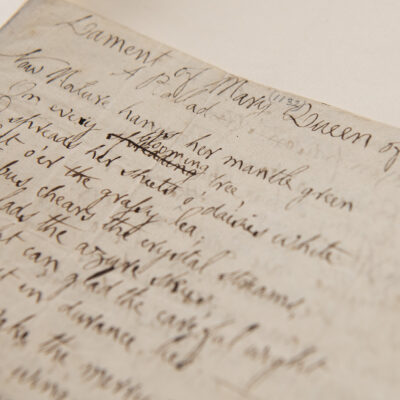 Lament of Mary Queen of
A Balad
(1792)
Now Nature hangs her mantle green
On every blooming tree,
spreads her sheets o' daisies white
o'er the grassy lea;
chears the crystal streams,
the azure skies;
can glad the careful wight
in durance lies.
the merry
wing